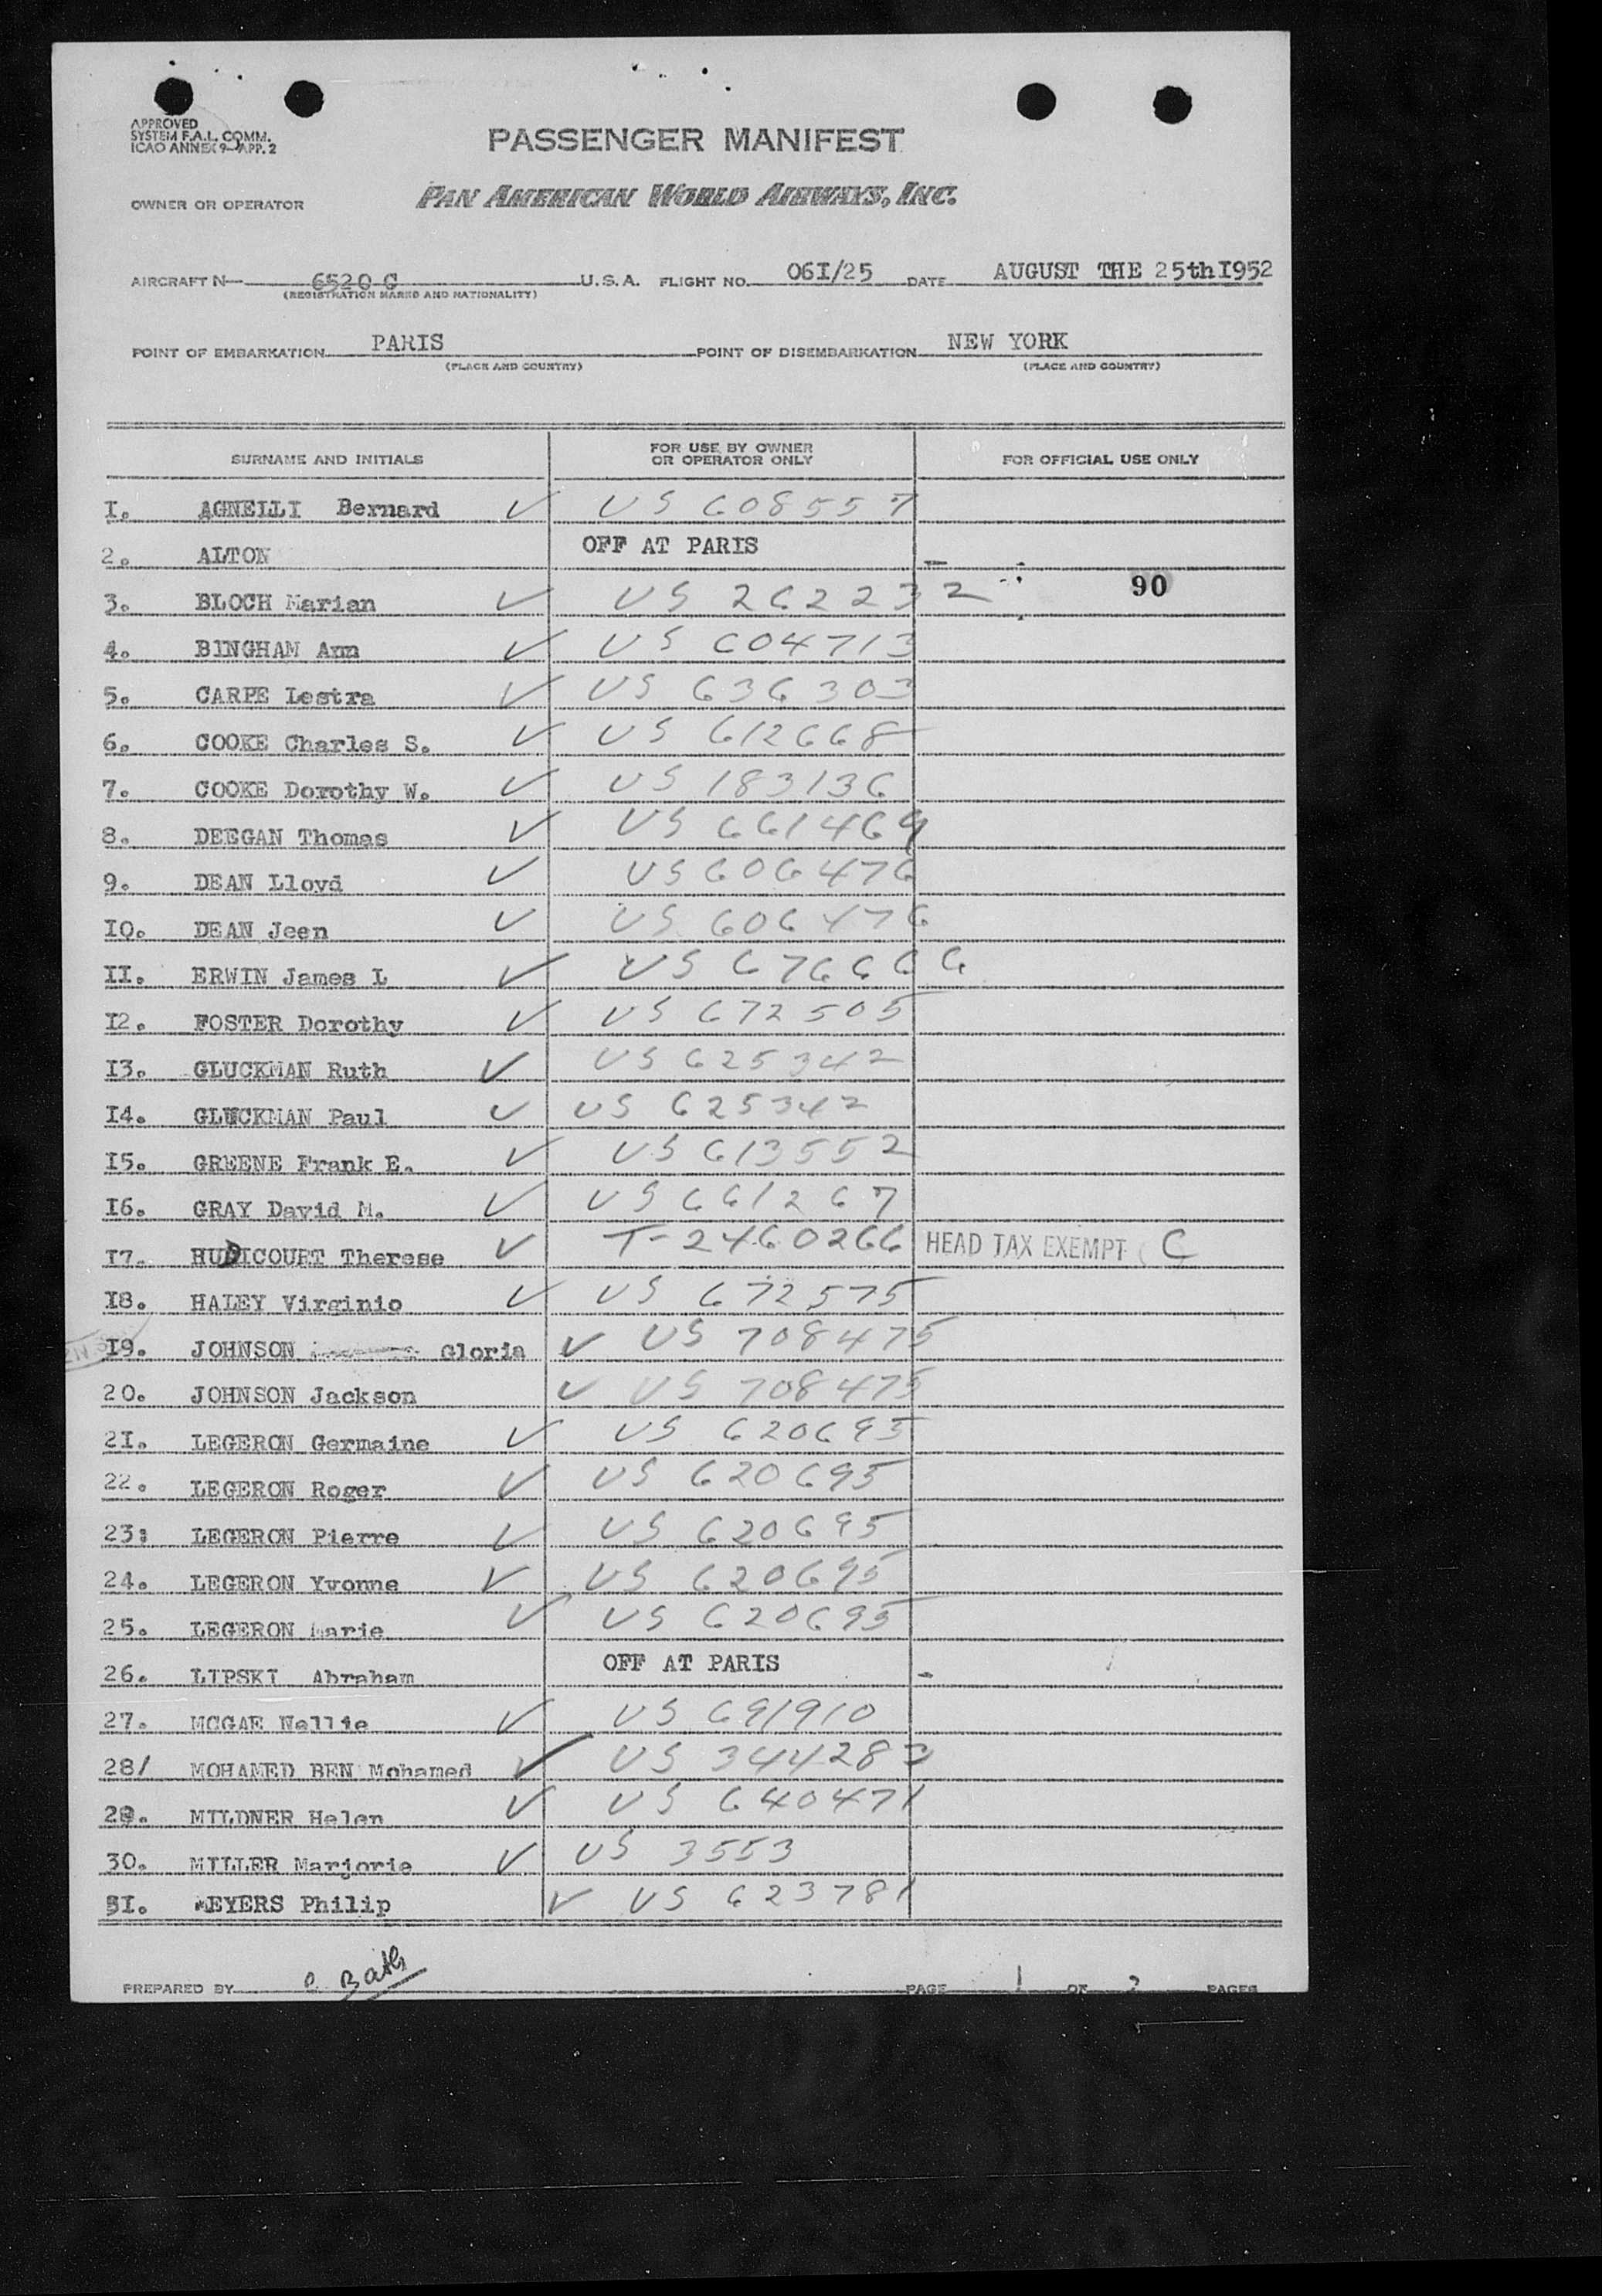 APPROVED
SYSTEM F.A.L. COMM.
ICAO ANNEX 9-APP. 2
PASSENGER MANIFEST
OWNER OR OPERATOR PAN AMERICAN WORLD AIRWAYS, INC.
AIRCRAFT N- 6520 C U.S.A. FLIGHT NO. 06I/25 DATE AUGUST THE 25th I952
(REGISTRATION MARKS AND NATIONALITY)
POINT OF EMBARKATION PARIS POINT OF DISEMBARKATION NEW YORK
(PLACE AND COUNTRY) (PLACE AND COUNTRY)
SURNAME AND INITIALS FOR USE BY OWNER OR OPERATOR ONLY FOR OFFICIAL USE ONLY
I. AGNELLI Bernard ✓ US 608557
2. ALTON OFF AT PARIS -
90
3. BLOCH Marian ✓ US 262232
4. BINGHAM Ann ✓ US 604713
5. CARPE Lestra ✓ US 636303
6. COOKE Charles S. ✓ US 612668
7. COOKE Dorothy W. ✓ US 183136
8. DEEGAN Thomas ✓ US 661469
9. DEAN Lloyd ✓ US 606476
I0. DEAN Jeen ✓ US 606476
II. ERWIN James L ✓ US 676666
I2. FOSTER Dorothy ✓ US 672505
I3. GLUCKMAN Ruth ✓ US 625342
I4. GLUCKMAN Paul ✓ US 625342
I5. GREENE Frank E. ✓ US 613552
I6. GRAY David M. ✓ US 661267
I7. HUDICOURT Therese ✓ T-2460266 HEAD TAX EXEMPT C
I8. HALEY Virginio ✓ US 672575
I9. JOHNSON Gloria ✓ US 708475
20. JOHNSON Jackson ✓ US 708475
2I. LEGERON Germaine ✓ US 620695
22. LEGERON Roger ✓ US 620695
23: LEGERON Pierre ✓ US 620695
24. LEGERON Yvonne ✓ US 620695
25. LEGERON Marie ✓ US 620695
26. LIPSKI Abraham OFF AT PARIS -
27. MCGAE Nellie ✓ US 691910
28/ MOHAMED BEN Mohamed ✓ US 344283
29. MILDNER Helen ✓ US 640471
30. MILLER Marjorie ✓ US 3553
3I. MEYERS Philip ✓ US 623781
PREPARED BY PAGE 1 OF 2 PAGES